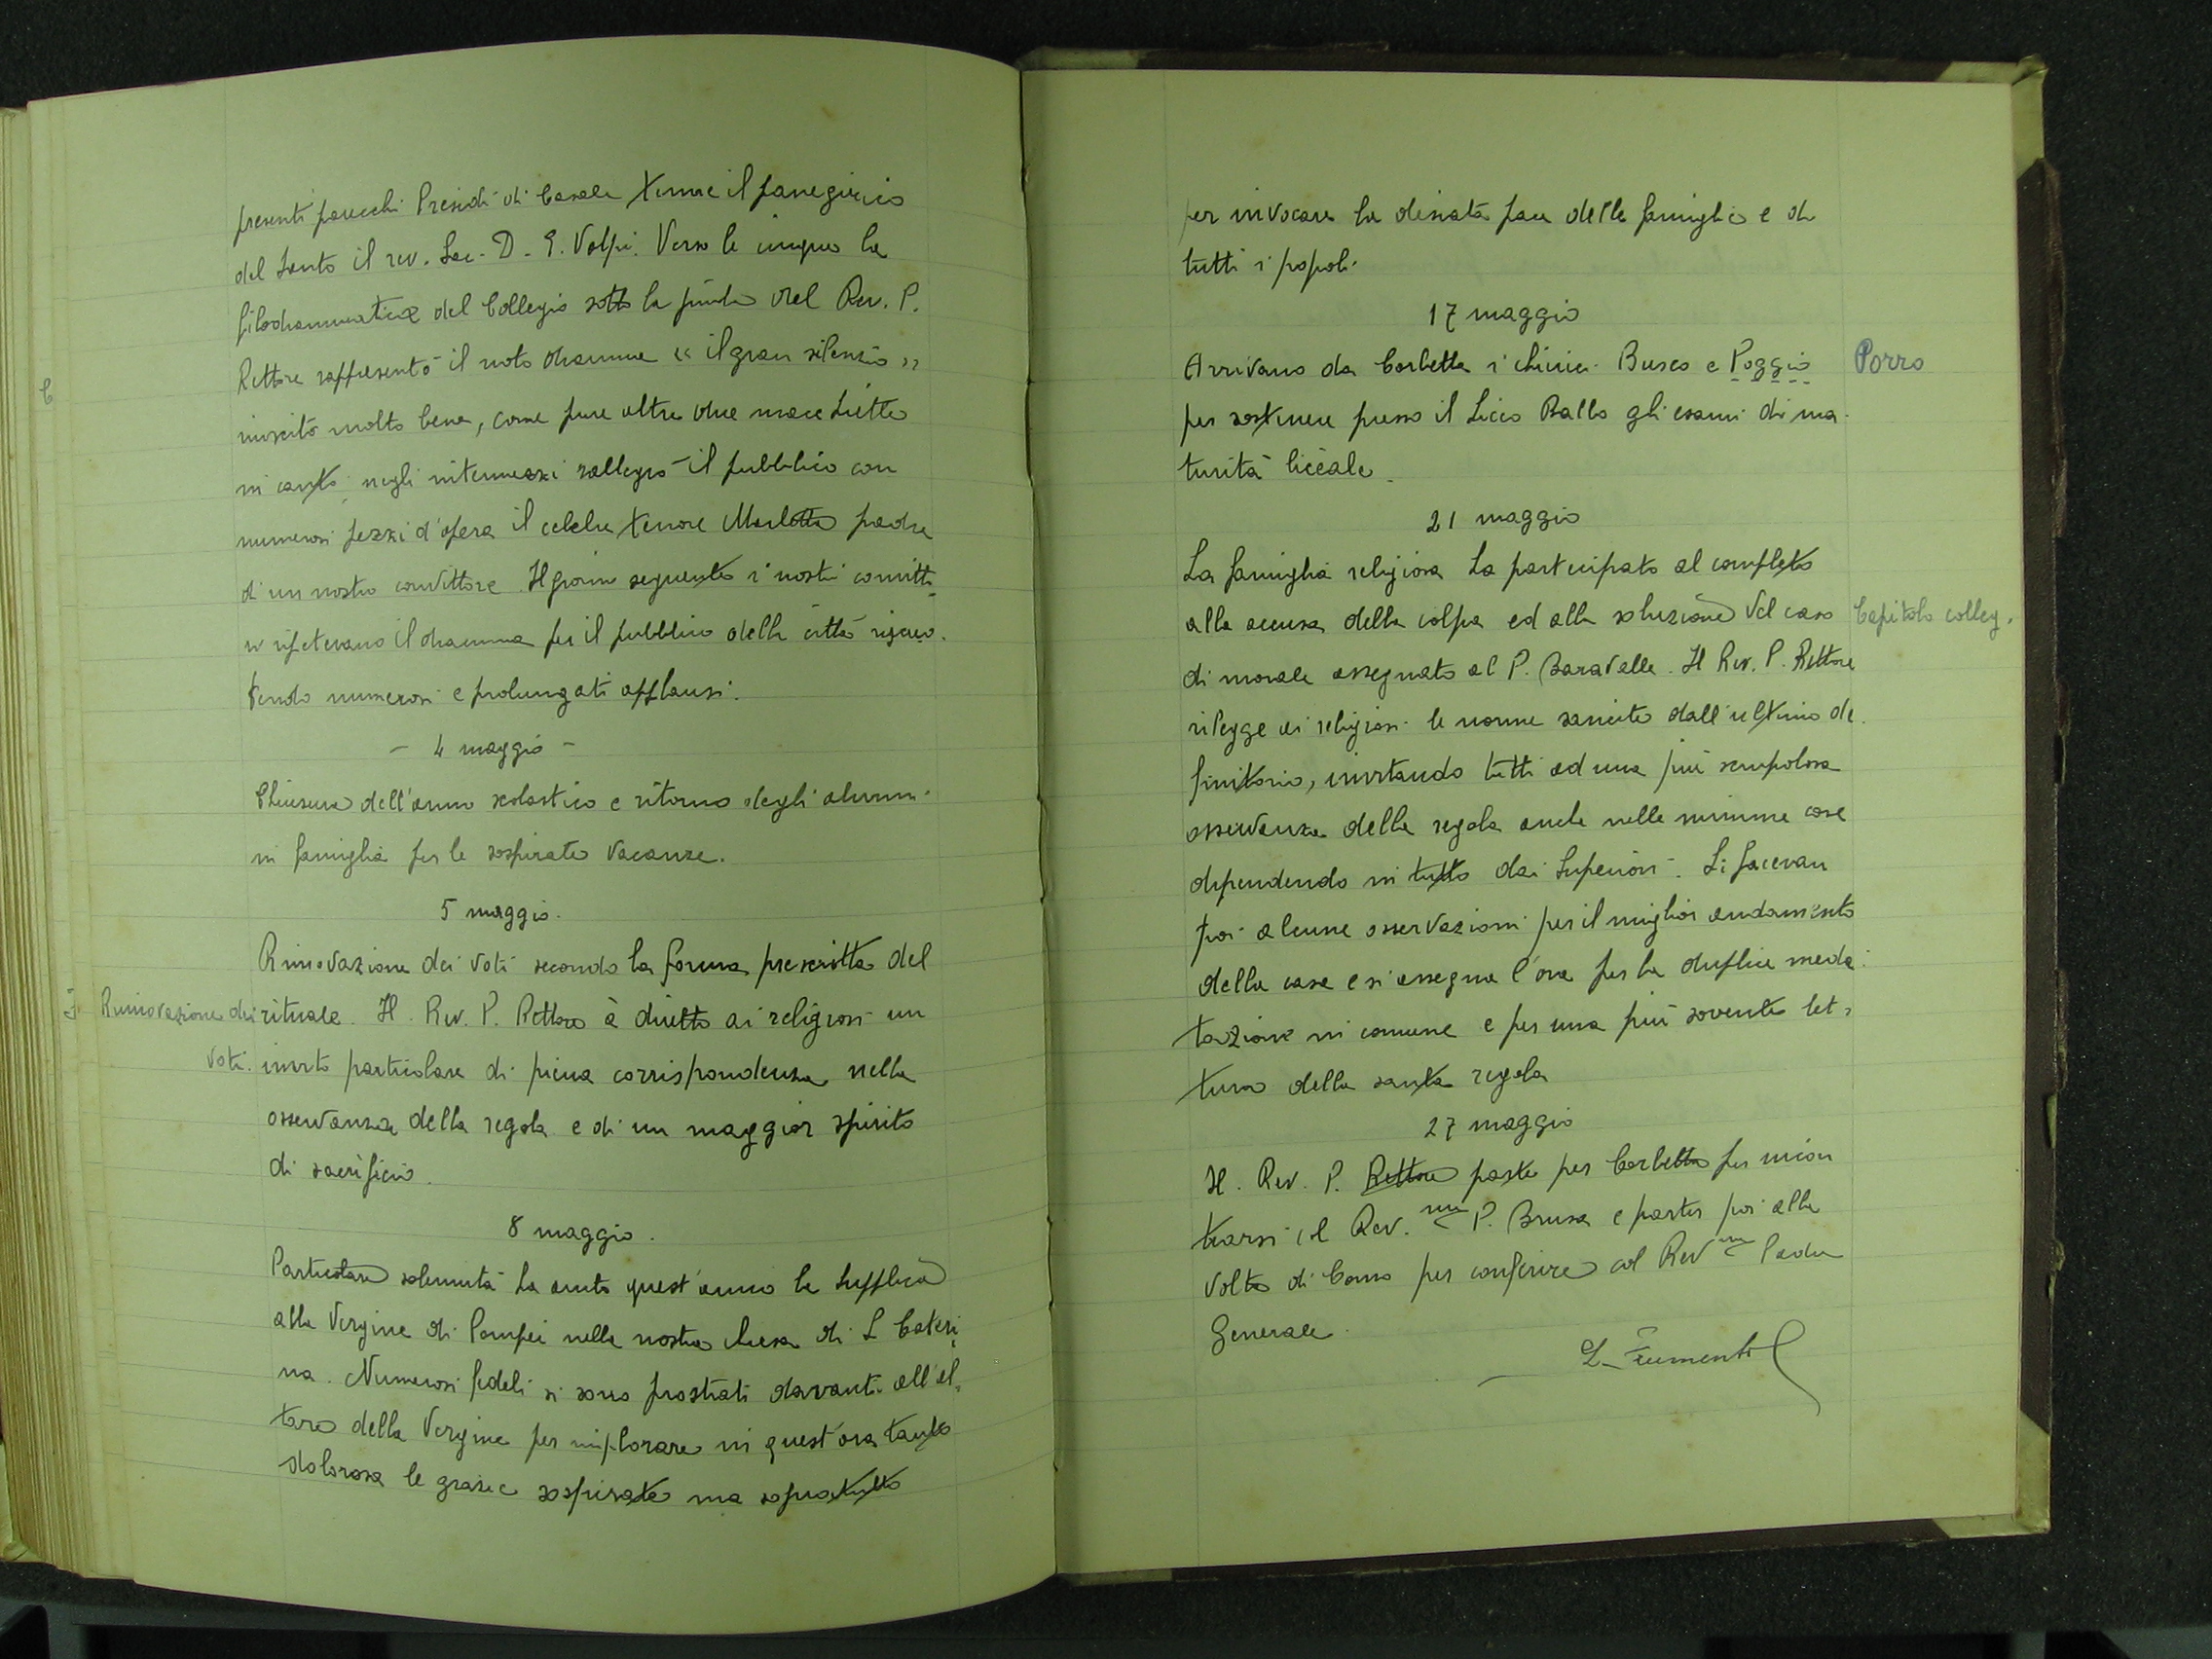 presenti parecchi Presidi di Casale tenne il panegirico
del Santo il rev. Sac. D. E. Volpi. Verso le cinque la
filodrammatica del Collegio sotto la guida del Rev. P.
Rettore rappresentò il noto dramma « il gran silenzio »
riuscito molto bene, come pure altre due macchiette
in canto; negli intermezzi rallegrò il pubblico con
numerosi pezzi d'opera il celebre tenore Merlotti padre
di un nostro convittore. Il giorno seguente i nostri convitto
ri ripetevano il dramma per il pubblico della città riscuo.
tendo numerosi e prolungati applausi.
- 4 maggio -
Chiusura dell'anno scolastico e ritorno degli alunni
in famiglia per le sospirate vacanze.
5 maggio.
Rinnovazione dei Voti secondo la forma prescritta del
Rinnovazione dei
rituale. Il Rev. P. Rettore à diretto ai religiosi un
Voti.
invito particolare di piena corrispondenza nella
osservanza della regola e di un maggior spirito
di sacrificio.
8 maggio.
Particolare solennità ha avuto quest'anno la Supplica
alla Vergine di Pompei nella nostra chiesa di S. Cateri
na. Numerosi fedeli si sono prostrati davanti all'al,
tare della Vergine per implorare in quest'ora tanto
dolorosa le grazie sospirate ma sopratutto
per invocare la desiata pace delle famiglie e di
tutti i popoli.
17 maggio
Arrivano da Corbetta i chierici Busco e Poggio
Porro
per sostenere presso il Liceo Balbo gli esami di ma-
turità liceale.
21 maggio
La famiglia religiosa ha partecipato al completo
alla accusa della colpa ed alla soluzione del caso
Capitolo colleg.
di morale assegnato al P. Baravalle. Il Rev. P. Rettore
rilegge ai religiosi le norme sancite dall'ultimo de.
finitorio, invitando tutti ad una più scrupolosa
osservanza della regola anche nelle minime cose
dipendendo in tutto dai Superiori. Si facevan
poi alcune osservazioni per il miglior andamento
della casa e si assegna l'ora per la duplice medi
tazione in comune e per una più sovente let,
tura della santa regola
27 maggio
Il Rev. P. Rettore parte per Corbetta per incon
trarsi col Rev.mo P. Brusa e partir poi alla
volta di Como per conferire col Revmo Padre
Generale.
L. Frumento